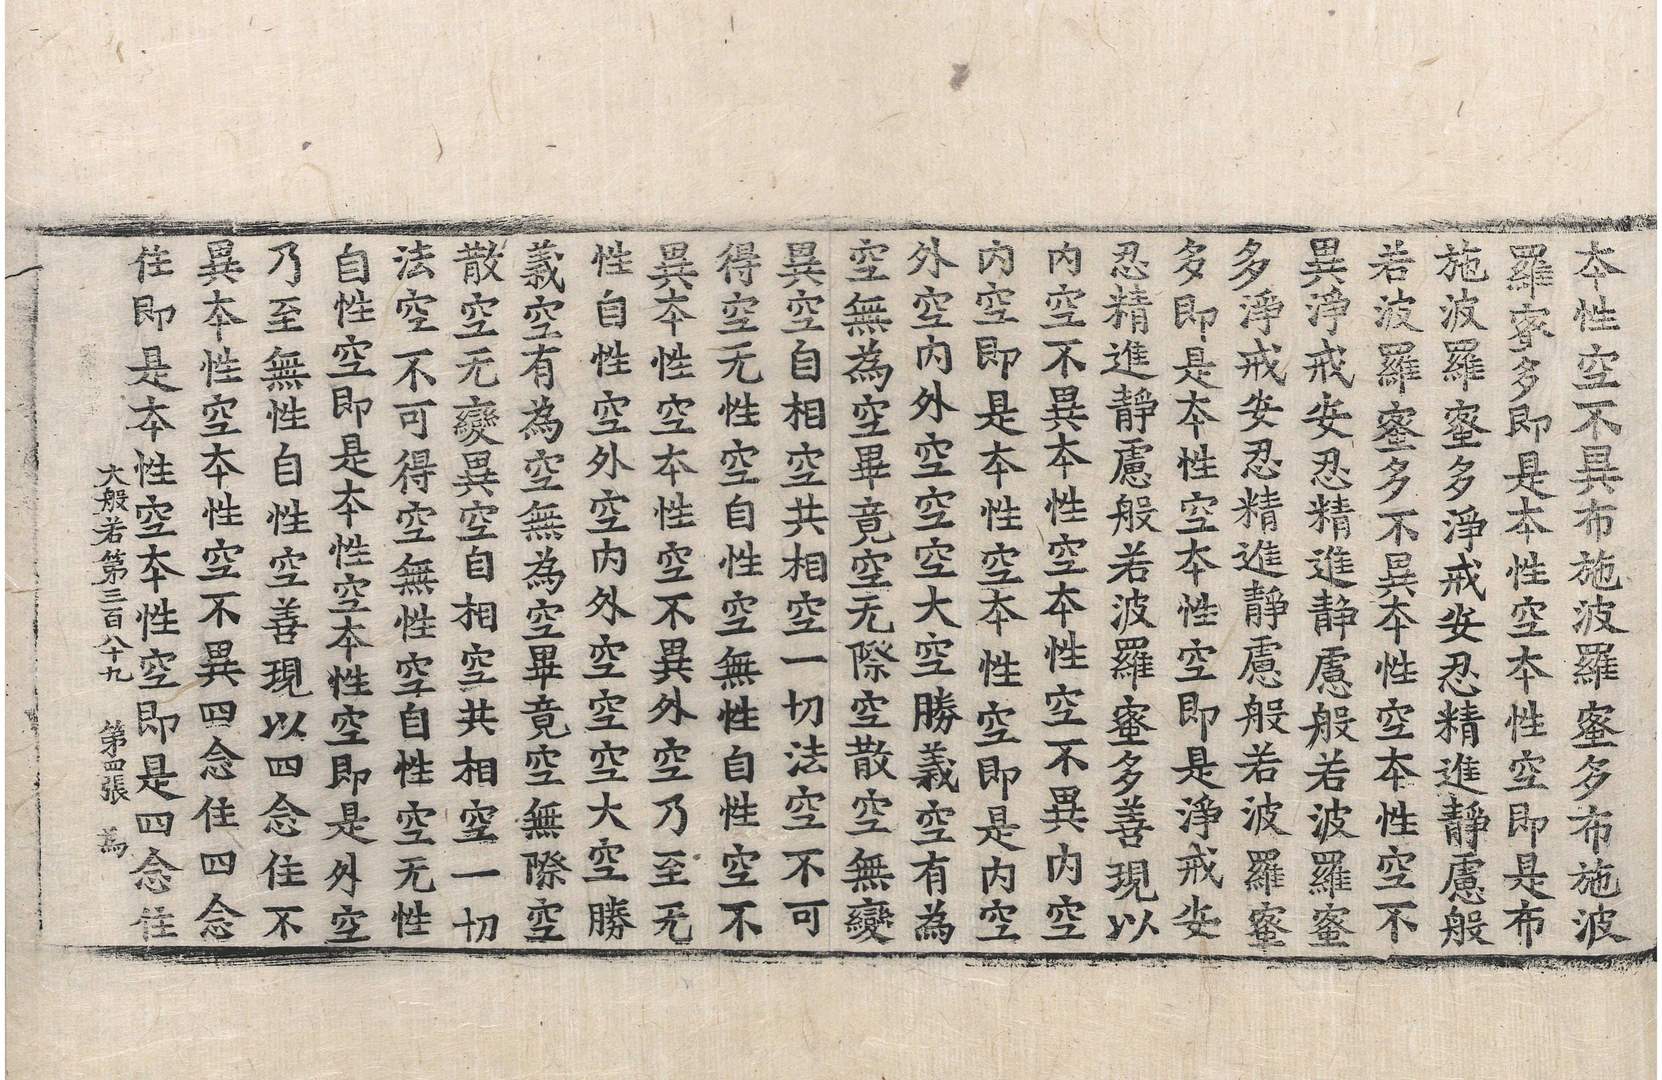 本性空不異布施波羅蜜多布施波
羅蜜多即是本性空本性空即是布
施波羅蜜多淨戒安忍精進靜慮般
若波羅蜜多不異本性空本性空不
異淨戒安忍精進靜慮般若波羅蜜
多淨戒安忍精進靜慮般若波羅蜜
多即是本性空本性空即是淨戒安
忍精進靜慮般若波羅蜜多善現以
内空不異本性空本性空不異内空
内空即是本性空本性空即是内空
外空内外空空空大空勝義空有為
空無為空畢竟空无際空散空無變
異空自相空共相空一切法空不可
得空无性空自性空無性自性空不
異本性空本性空不異外空乃至无
性自性空外空内外空空空大空勝
義空有為空無為空畢竟空無際空
散空无變異空自相空共相空一切
法空不可得空無性空自性空无性
自性空即是本性空本性空即是外空
乃至無性自性空善現以四念住不
異本性空本性空不異四念住四念
住即是本性空本性空即是四念住
大般若第三百八十九 第四張 為